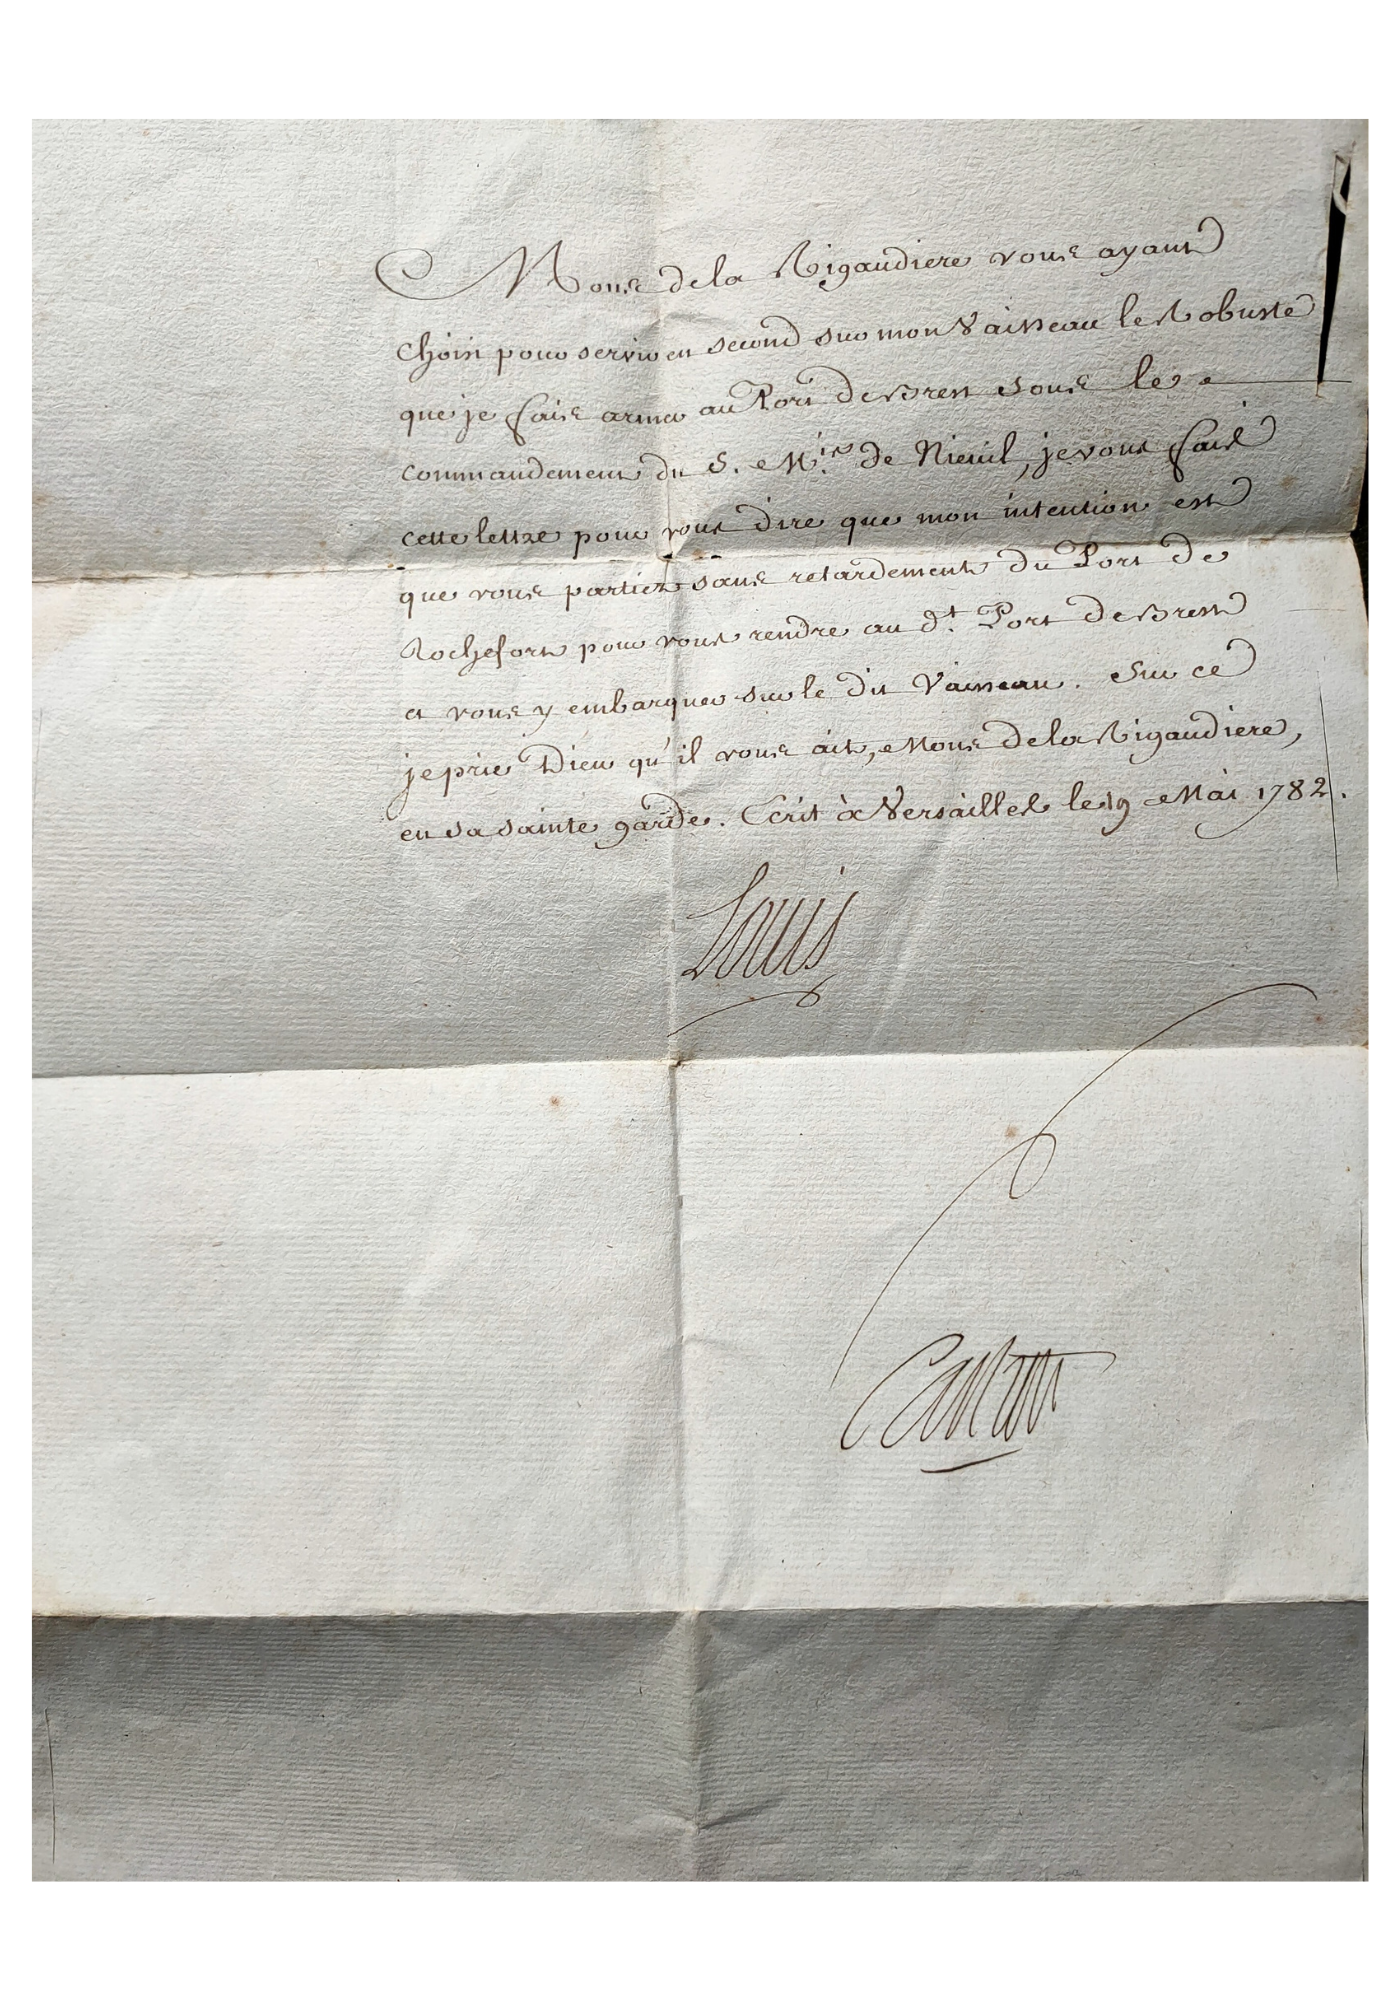 Mons de la Rigaudiere vous ayant
choisi pour servir en second sur mon Vaisseau le Robuste
que je fais armer au Port de Brest sous le
commandement du S. Mis de Nieuil, je vous fais
cette lettre pour vous dire que mon intention est
que vous partiez sans retardement du Port de
Rochefort pour vous rendre au dt. Port de Brest
et vous y embarquer sur le dit Vaisseau. Sur ce
je prie Dieu qu'il vous ait, Mons de la Rigaudiere,
en sa sainte garde. Ecrit à Versailles le 19 Mai 1782.
Louis
Castries